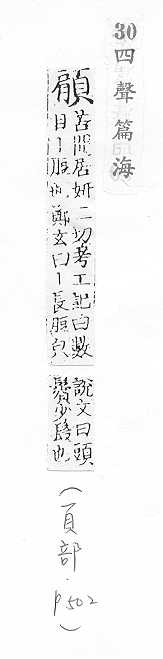 30 四聲篇海
顅 苦閒居妍二切考工記曰數
目丨脰也鄭玄曰丨長脰皃
說文曰頭
鬢少髮也
(頁部.p502)